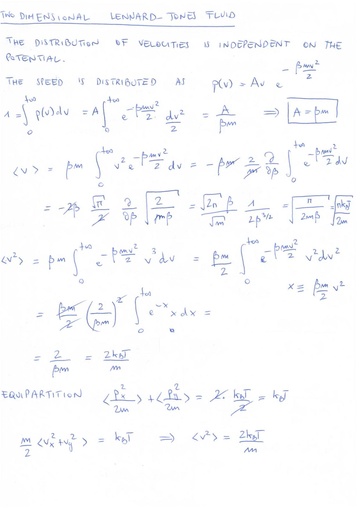 TWO DIMENSIONAL LENNARD-JONES FLUID
THE DISTRIBUTION OF VELOCITIES IS INDEPENDENT ON THE
POTENTIAL.
THE SPEED IS DISTRIBUTED AS p(v) = Av e^{-βmv²/2}
1 = ∫_0^{+∞} p(v) dv = A ∫_0^{+∞} e^{-βmv²/2} dv²/2 = A/βm ⇒ A = βm
<v> = βm ∫_0^{+∞} v² e^{-βmv²/2} dv = -βm 2/m ∂/∂β ∫_0^{+∞} e^{-βmv²/2} dv
= -2β √π/2 ∂/∂β √(2/mβ) = √2π/√m β 1/2β^{3/2} = √(π/2mβ) = √(πk_BT/2m)
<v²> = βm ∫_0^{+∞} e^{-βmv²/2} v³ dv = βm/2 ∫_0^{+∞} e^{-βmv²/2} v² dv²
x ≡ βm/2 v²
= βm/2 (2/βm)² ∫_0^{+∞} e^{-x} x dx =
= 2/βm = 2k_BT/m
EQUIPARTITION <p_x²/2m> + <p_y²/2m> = 2 · k_BT/2 = k_BT
m/2 <v_x² + v_y²> = k_BT ⇒ <v²> = 2k_BT/m